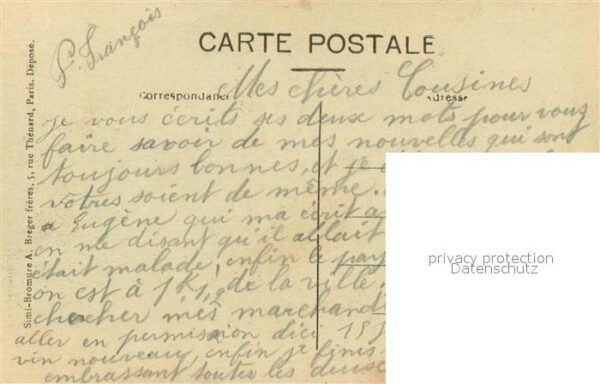 P. François
CARTE POSTALE
Correspondance
Adresse
Mes chères Cousines
je vous écrits ses deux mots pour vous
faire savoir de mes nouvelles qui sont
toujours bonnes, et je
votres soient de même.
a Eugène qui ma écrit
en me disant qu'il allait
était malade, enfin le pay
on est à 1 K, de la ville.
chercher mes marchand
aller en permission dici 15
vin nouveau, enfin je finis
embrassant toutes les deux
Simi-Bromure A. Breger frères, 5, rue Thénard, Paris. Déposé.
privacy protection
Datenschutz